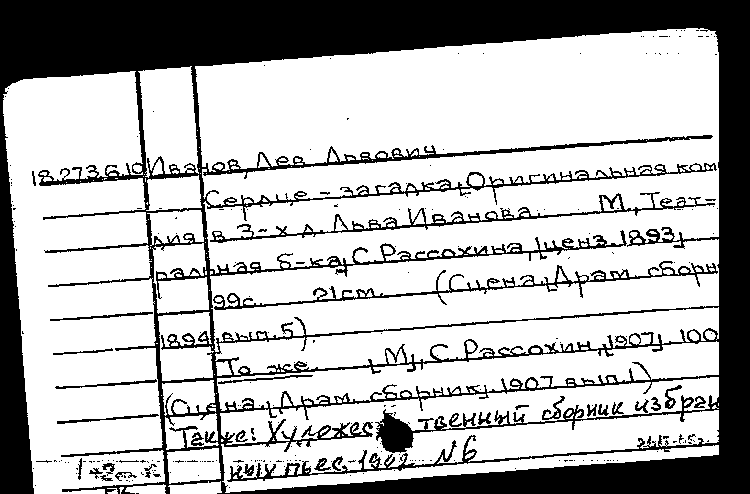 18.273.6.10 Иванов, Лев Львович
Сердце - загадка. [Оригинальная ком
дия в 3-х д. Льва Иванова. М., Теат=
ральная б-ка, С. Рассохина, [ценз. 1893]
99с. 21см. (Сцена. [Драм. сборн
1894, вып. 5).
То же. [М], С. Рассохин, [1907]. 100
(Сцена. [Драм. сборник]. 1907 вып. 1)
Также: Художественный сборник избран
ных пьес. 1902 N6